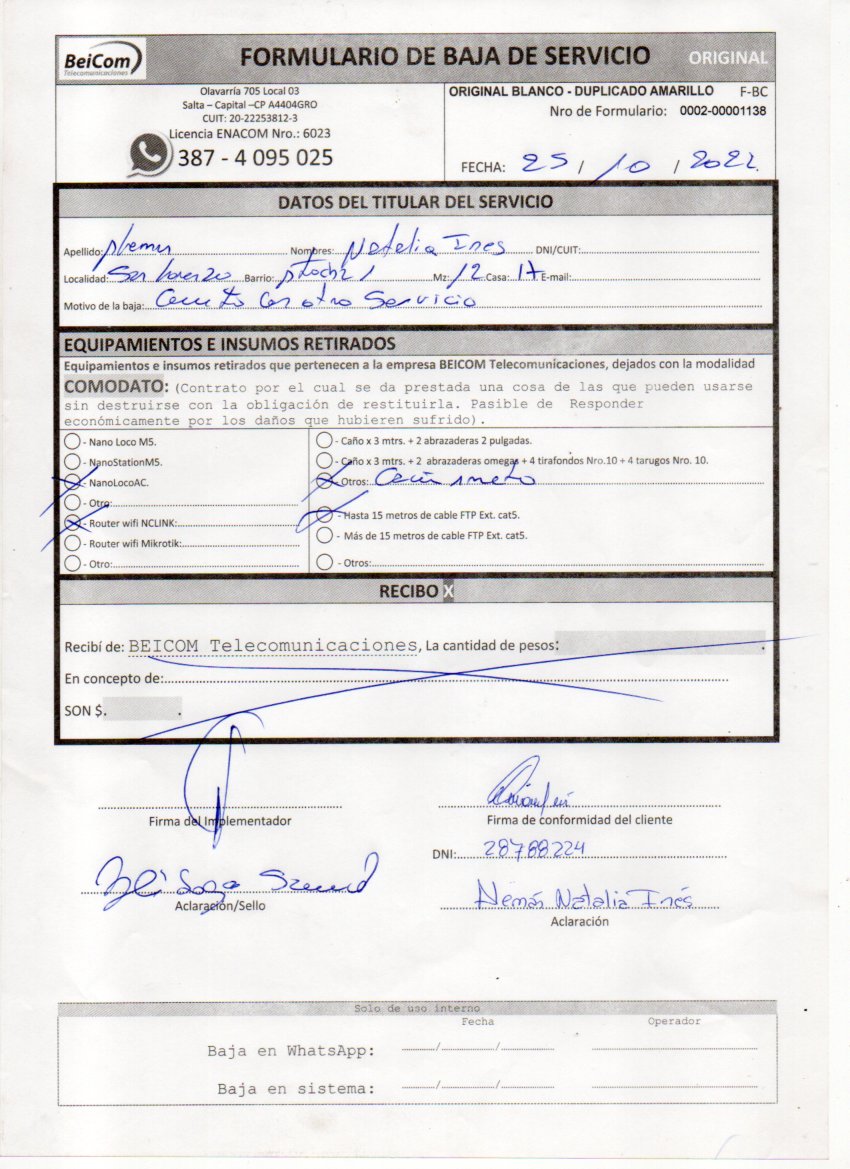 BeiCom
Telecomunicaciones
FORMULARIO DE BAJA DE SERVICIO ORIGINAL
Olavarría 705 Local 03
Salta – Capital –CP A4404GRO
CUIT: 20-22253812-3
Licencia ENACOM Nro.: 6023
387 - 4 095 025
ORIGINAL BLANCO - DUPLICADO AMARILLO F-BC
Nro de Formulario: 0002-00001138
FECHA: 25 / 10 / 2022
DATOS DEL TITULAR DEL SERVICIO
Apellido: Nombres: Natalia Ines DNI/CUIT:
Localidad: San Lorenzo Barrio: Mz: 12 Casa: 17 E-mail:
Motivo de la baja: con otro Servicio
EQUIPAMIENTOS E INSUMOS RETIRADOS
Equipamientos e insumos retirados que pertenecen a la empresa BEICOM Telecomunícaciones, dejados con la modalidad
COMODATO: (Contrato por el cual se da prestada una cosa de las que pueden usarse
sin destruirse con la obligación de restituirla. Pasible de Responder
económicamente por los daños que hubieren sufrido).
- Nano Loco M5.
- NanoStationM5.
- NanoLocoAC.
- Otro:
- Router wifi NCLINK:
- Router wifi Mikrotik:
- Otro:
- Caño x 3 mtrs. + 2 abrazaderas 2 pulgadas.
- Caño x 3 mtrs. + 2 abrazaderas omegas + 4 tirafondos Nro.10 + 4 tarugos Nro. 10.
- Otros:
- Hasta 15 metros de cable FTP Ext. cat5.
- Más de 15 metros de cable FTP Ext. cat5.
- Otros:
RECIBO X
Recibí de: BEICOM Telecomunicaciones, La cantidad de pesos:
En concepto de:
SON $.
Firma del Implementador
Aclaración/Sello
Firma de conformidad del cliente
DNI: 28788224
Nemás Natalia Inés
Aclaración
Solo de uso interno
Fecha Operador
Baja en WhatsApp: / /
Baja en sistema: / /